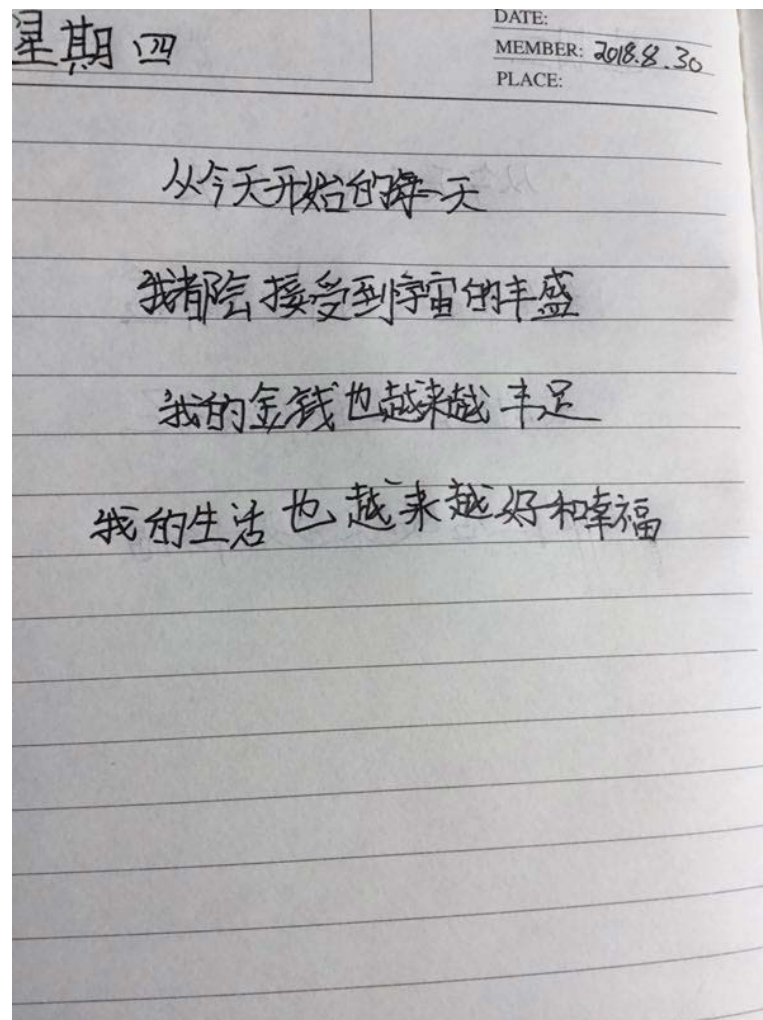 星期四
DATE:
MEMBER: 2018.8.30
PLACE:
从今天开始的每一天
我都会接受到宇宙的丰盛
我的金钱也越来越丰足
我的生活也越来越好和幸福